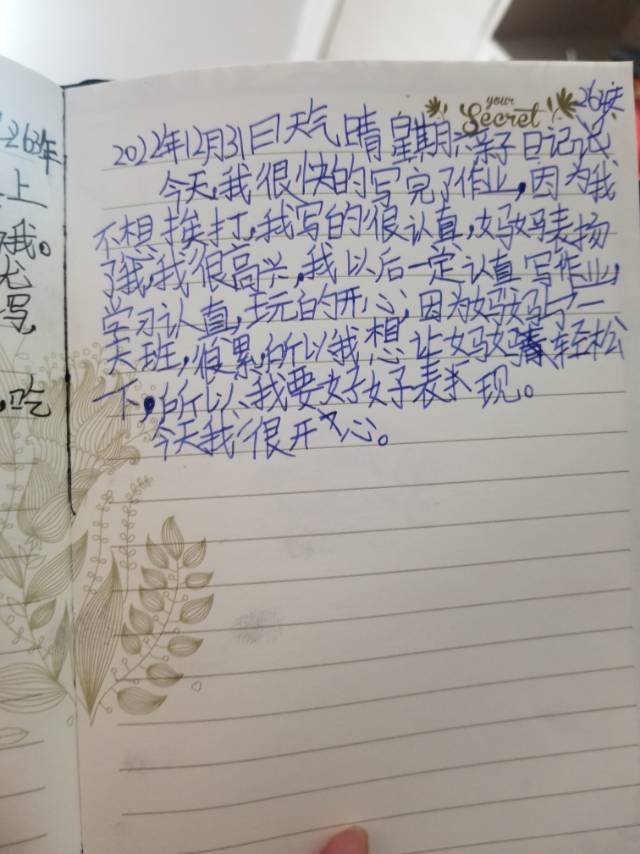 your
Secret
2022年12月31日天气晴星期六亲子日记
今天,我很快的写完了作业,因为我
不想挨打,我写的很认真,妈妈表扬
了我,我很高兴,我以后一定认真写作业,
学习认真,玩的开心,因为妈妈上了一
天班,很累,所以我想让妈妈轻松
下,所以,我要好好子表现。
今天我很开心。
上
我。
写,
吃